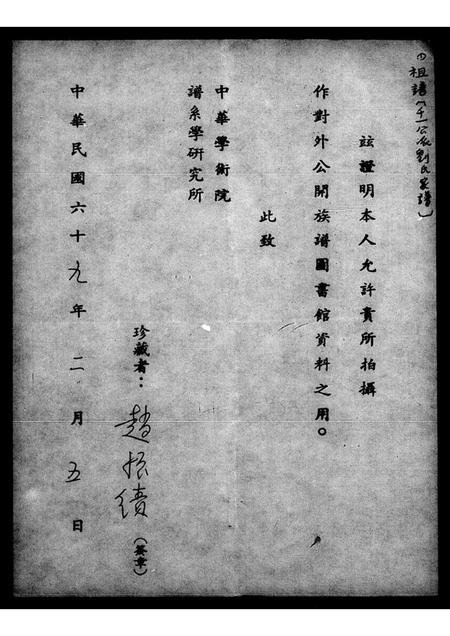 ①祖譜(千一公派劉氏家譜)
玆證明本人允許貴所拍攝
作對外公開族譜圖書館資料之用。
此致
中華學術院
譜系學研究所
珍藏者：趙振績(簽章)
中華民國六十九年二月五日